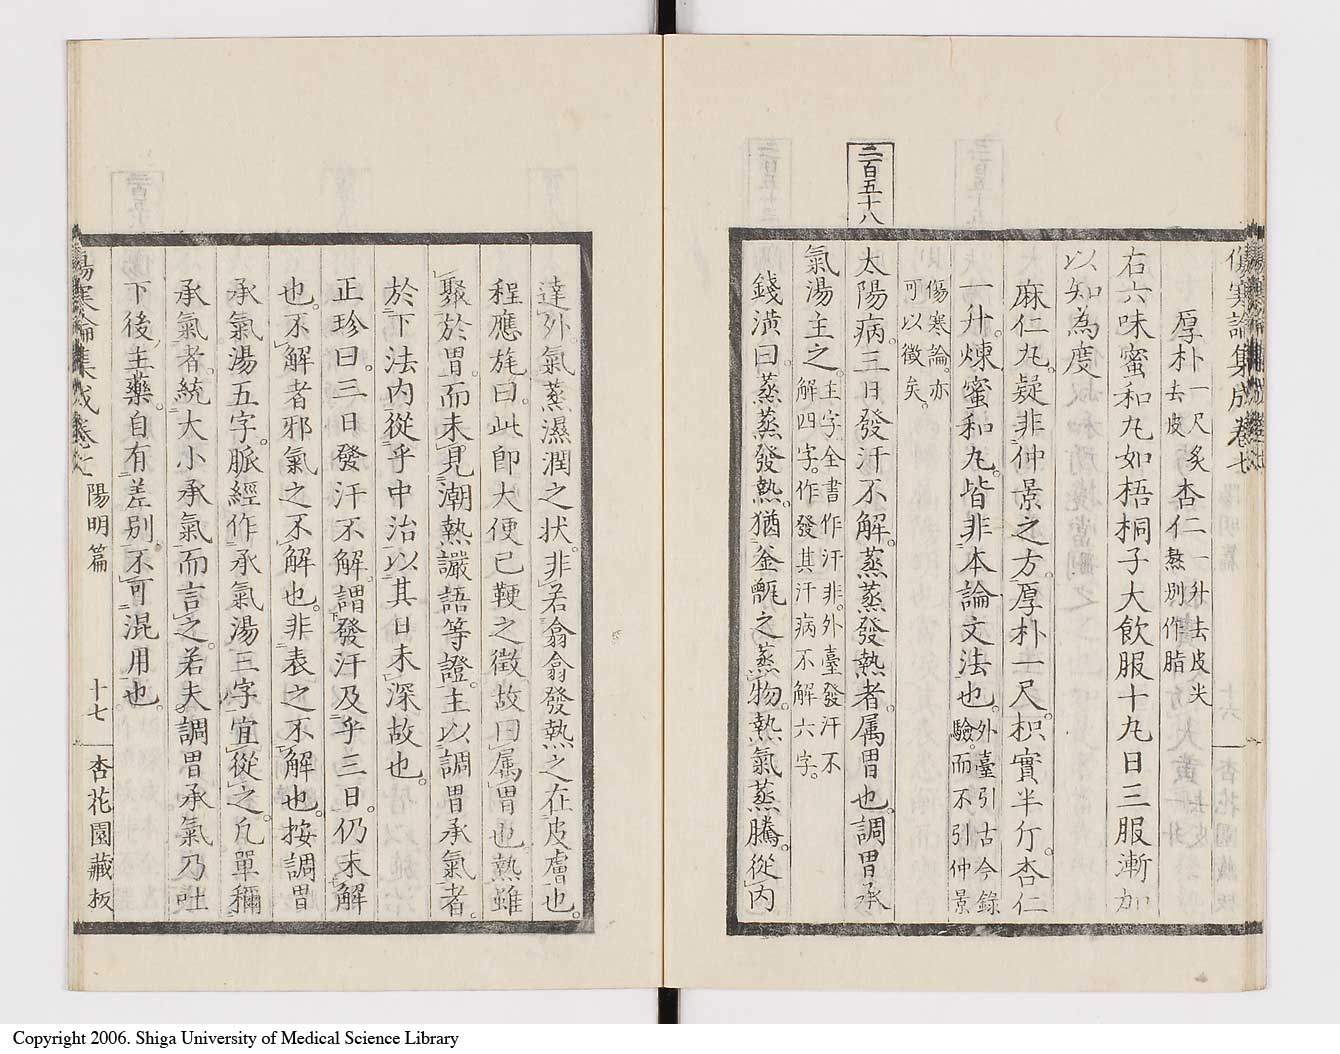 傷寒論集成卷七
厚朴一尺炙去皮 杏仁一升去皮尖熬別作脂
右六味蜜和丸如梧桐子大飲服十丸日三服漸加
以知為度
麻仁丸。疑非仲景之方。厚朴一尺。枳實半斤。杏仁
一升。煉蜜和丸。皆非本論文法也。外臺引古今錄
驗。而不引仲景
傷寒論。亦
可以徵矣。
二百五十八
太陽病。三日發汗不解。蒸蒸發熱者。属胃也。調胃承
氣湯主之。主字全書作汗非。外臺發汗不
解四字。作發其汗病不解六字。
錢潢曰。蒸蒸發熱。猶釜甑之蒸物。熱氣蒸騰。從內
達外。氣蒸濕潤之狀。非若翕翕發熱之在皮膚也。
程應旄曰。此即大便已鞕之徵。故曰属胃也。熱雖
聚於胃。而未見潮熱讝語等證。主以調胃承氣者。
於下法內從乎中治。以其日未深故也。
正珍曰。三日發汗不解。謂發汗及乎三日。仍未解
也。不解者邪氣之不解也。非表之不解也。按調胃
承氣湯五字。脈經作承氣湯三字。宜從之。凡單稱
承氣者。統大小承氣而言之。若夫調胃承氣。乃吐
下後主藥。自有差別。不可混用也。
傷寒論集成卷七 陽明篇 十七 杏花園藏板
Copyright 2006. Shiga University of Medical Science Library